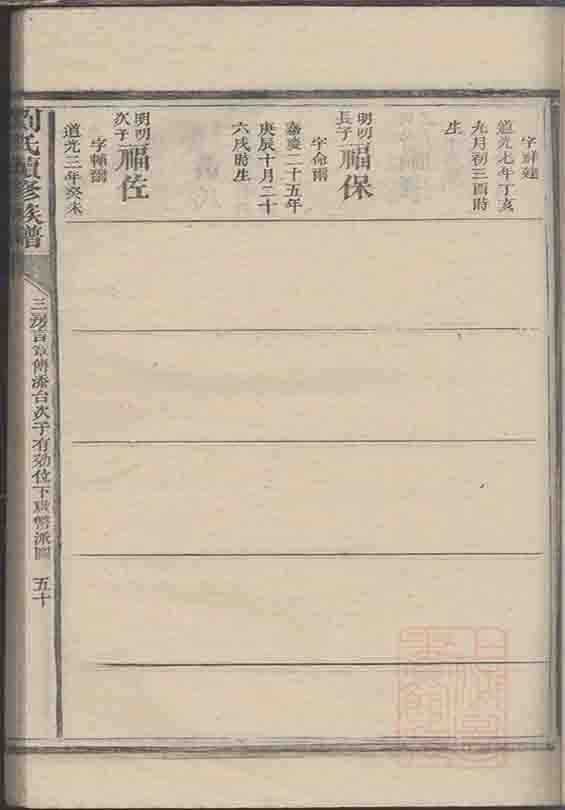 字鮮建
道光七年丁亥
九月初三酉時
生
明明長子福保
字命爾
嘉慶二十五年
庚辰十月二十
六戌時生
明明次子福佐
字輔爾
道光三年癸未
劉氏續修族譜
三房言章傳添台次子有効位下歲幣派圖 五十
上海圖書館藏